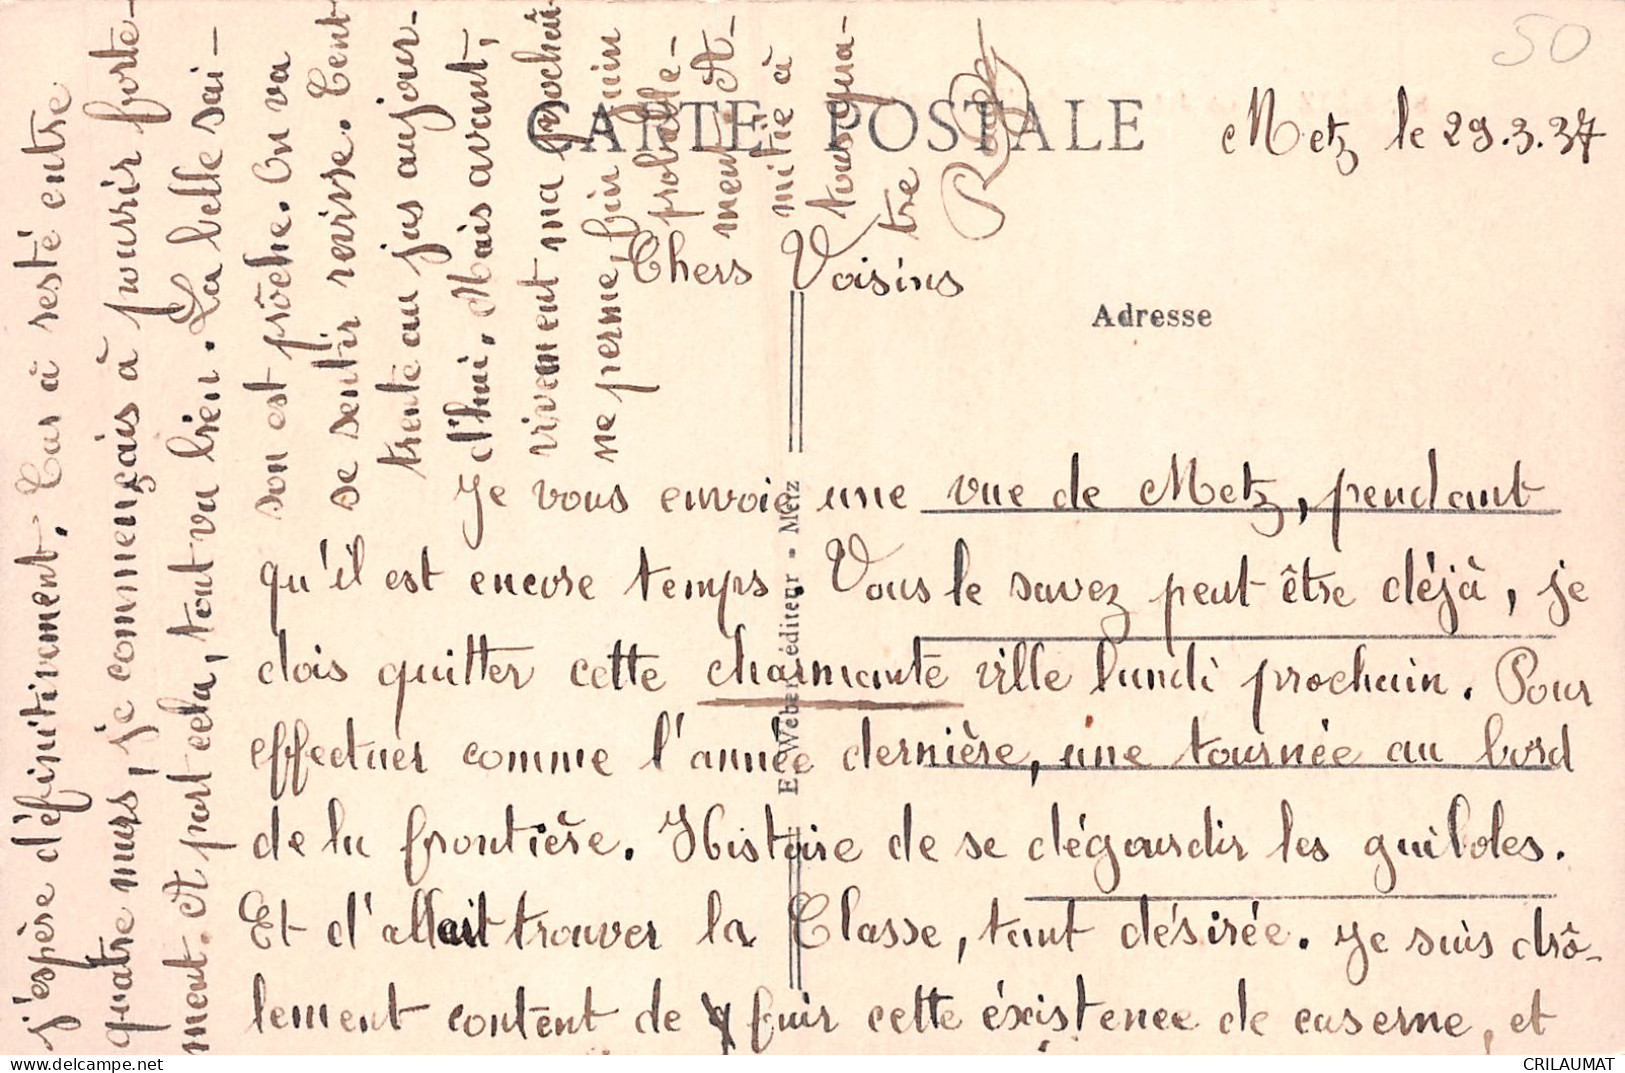 50
CARTE POSTALE
Metz le 29.3.37
Chers Voisins
Adresse
E. Weber éditeur - Metz
Je vous envoie une vue de Metz, pendant
qu'il est encore temps. Vous le savez peut être déjà, je
dois quitter cette charmante ville lundi prochain. Pour
effectuer comme l'année dernière, une tournée au bord
de la frontière. Histoire de se dégourdir les guiboles.
Et d'allait trouver la Classe, tant désirée. Je suis drô-
lement content de fuir cette éxistence de caserne, et
j'espère définitivement. Car à resté entre
quatre murs, je commençais à pourrir forte-
ment. At part cela, tout va bien. La belle sai-
son est prôche. On va
se sentir revivre. Cent
trente au jus aujour-
d'hui. Mais avant,
vivement ma prochai
ne perme, fin juin
probablé-
ment. A-
mitié à
tous qua-
tre
CRILAUMAT